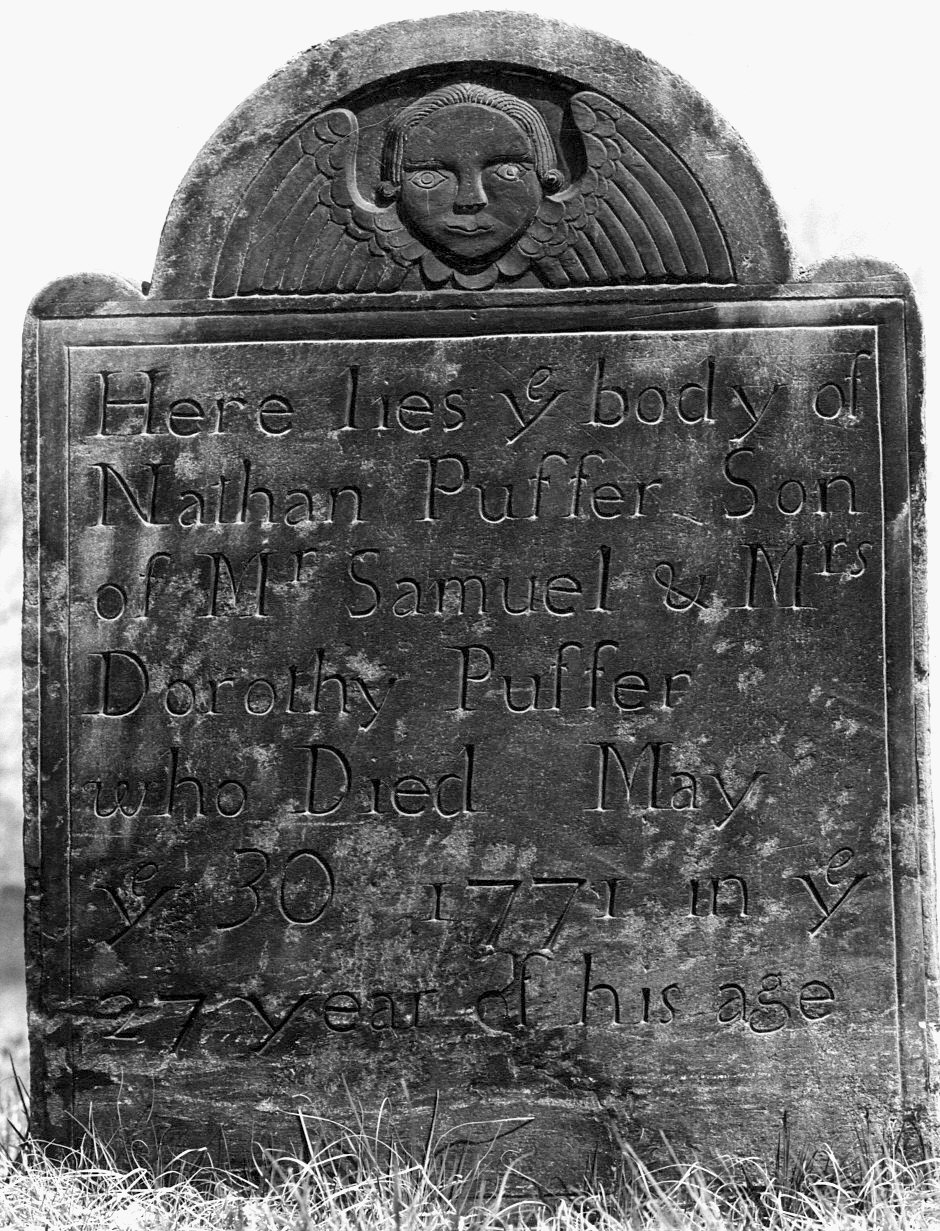 Here lies yᵉ body of
Nathan Puffer Son
of Mʳ Samuel & Mʳˢ
Dorothy Puffer
who Died May
yᵉ 30 1771 in yᵉ
27 year of his age